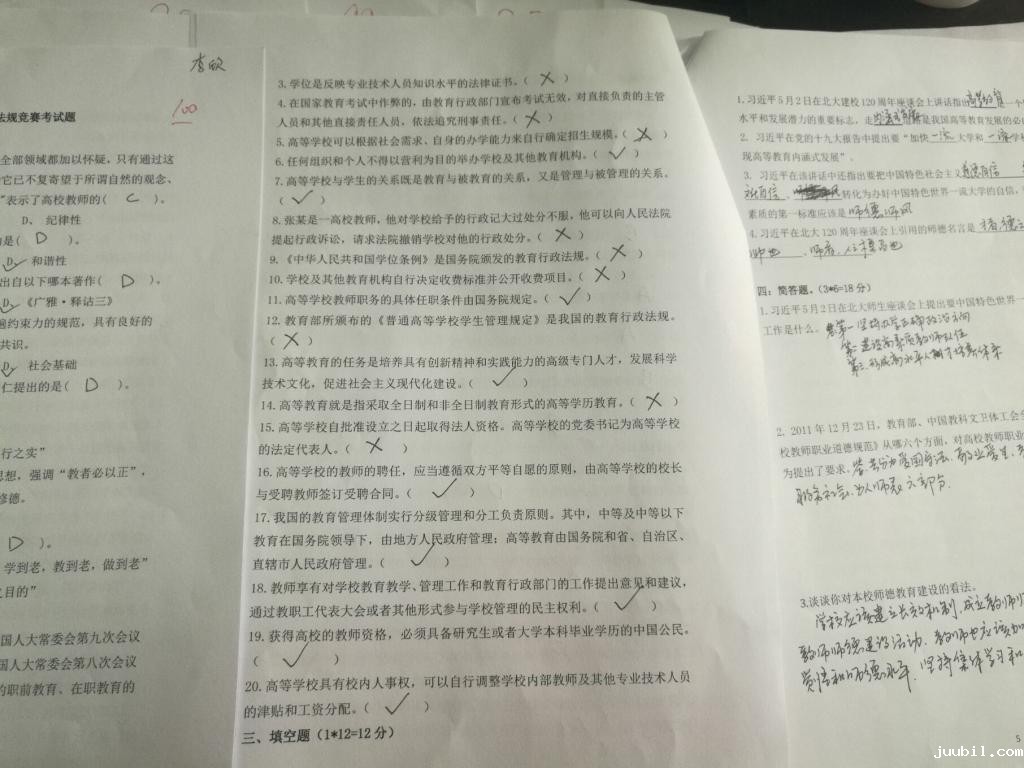 李欣
100
法规竞赛考试题
全部领域都加以怀疑,只有通过这
它已不复寄望于所谓自然的观念、
”表示了高校教师的( C )。
D、 纪律性
的是( D )。
D、和谐性
出自以下哪本著作( D )。
D、《广雅·释诂三》
遍约束力的规范,具有良好的
共识。
D、社会基础
仁提出的是( D )。
行之实”
思想,强调“教者必以正”,
修德。
D )。
学到老,教到老,做到老”
之目的”
国人大常委会第九次会议
国人大常委会第八次会议
的职前教育、在职教育的
3.学位是反映专业技术人员知识水平的法律证书。( × )
4.在国家教育考试中作弊的,由教育行政部门宣布考试无效,对直接负责的主管
人员和其他直接责任人员,依法追究刑事责任。( × )
5.高等学校可以根据社会需求、自身的办学能力来自行确定招生规模。( × )
6.任何组织和个人不得以营利为目的举办学校及其他教育机构。( ✓ )
7.高等学校与学生的关系既是教育与被教育的关系,又是管理与被管理的关系。
( ✓ )
8.张某是一高校教师,他对学校给予的行政记大过处分不服,他可以向人民法院
提起行政诉讼,请求法院撤销学校对他的行政处分。( × )
9.《中华人民共和国学位条例》是国务院颁发的教育行政法规。( × )
10.学校及其他教育机构自行决定收费标准并公开收费项目。( × )
11.高等学校教师职务的具体任职条件由国务院规定。( ✓ )
12.教育部所颁布的《普通高等学校学生管理规定》是我国的教育行政法规。
( × )
13.高等教育的任务是培养具有创新精神和实践能力的高级专门人才,发展科学
技术文化,促进社会主义现代化建设。( ✓ )
14.高等教育就是指采取全日制和非全日制教育形式的高等学历教育。( × )
15.高等学校自批准设立之日起取得法人资格。高等学校的党委书记为高等学校
的法定代表人。( × )
16.高等学校的教师的聘任,应当遵循双方平等自愿的原则,由高等学校的校长
与受聘教师签订受聘合同。( ✓ )
17.我国的教育管理体制实行分级管理和分工负责原则。其中,中等及中等以下
教育在国务院领导下,由地方人民政府管理;高等教育由国务院和省、自治区、
直辖市人民政府管理。( ✓ )
18.教师享有对学校教育教学、管理工作和教育行政部门的工作提出意见和建议,
通过教职工代表大会或者其他形式参与学校管理的民主权利。( ✓ )
19.获得高校的教师资格,必须具备研究生或者大学本科毕业学历的中国公民。
( ✓ )
20.高等学校具有校内人事权,可以自行调整学校内部教师及其他专业技术人员
的津贴和工资分配。( ✓ )
三、填空题(1*12=12分)
1.习近平5月2日在北大建校120周年座谈会上讲话指出高等教育是一个
水平和发展潜力的重要标志,走内涵式发展是我国高等教育发展的必由
2. 习近平在党的十九大报告中提出要“加快一流大学和一流学
现高等教育内涵式发展”。
3. 习近平在该讲话中还指出要把中国特色社会主义道路自信、
转化为办好中国特色世界一流大学的自信,
素质的第一标准应该是师德师风
4.习近平在北大120周年座谈会上引用的师德名言是
师也 、师者,人之模范也
四:简答题。(3*6=18分)
1.习近平5月2日在北大师生座谈会上提出要中国特色世界一
工作是什么。 第一坚持办学正确政治方向
第二建设高素质教师队伍
第三、形成高水平人才培养体系
2. 2011年12月23日,教育部、中国教科文卫体工会全
校教师职业道德规范》从哪六个方面,对高校教师职业
为提出了要求。答:共分为爱国守法、敬业爱生、
服务社会、为人师表六部分。
3.谈谈你对本校师德教育建设的看法。
学校应该建立长效机制,成立教师师
教师师德建设活动、教师也应该加
坚持集体学习和
5
juubil.com